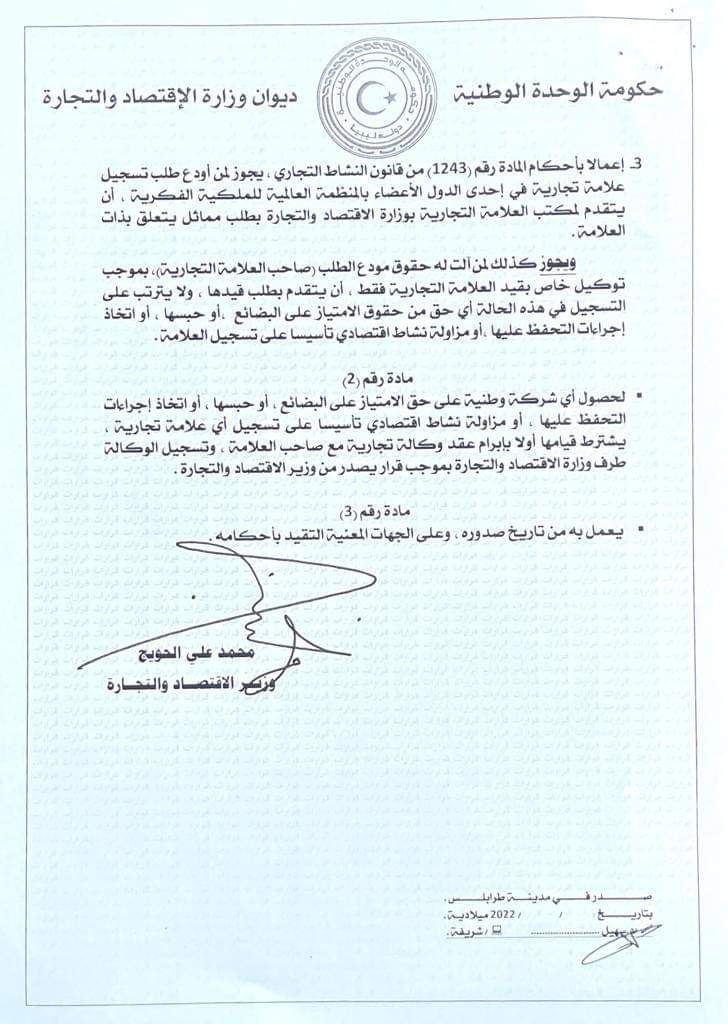 حكومة الوحدة الوطنية
حكومة الوحدة الوطنية
دولة ليبيا
ديوان وزارة الإقتصاد والتجارة
3ـ إعمالا بأحكام المادة رقم (1243) من قانون النشاط التجاري، يجوز لمن أودع طلب تسجيل
علامة تجارية في إحدى الدول الأعضاء بالمنظمة العالمية للملكية الفكرية ، أن
يتقدم لمكتب العلامة التجارية بوزارة الاقتصاد والتجارة بطلب مماثل يتعلق بذات
العلامة.
ويجوز كذلك لمن آلت له حقوق مودع الطلب (صاحب العلامة التجارية)، بموجب
توكيل خاص بقيد العلامة التجارية فقط ، أن يتقدم بطلب قيدها ، ولا يترتب على
التسجيل في هذه الحالة أي حق من حقوق الامتياز على البضائع ،أو حبسها ، أو اتخاذ
إجراءات التحفظ عليها ،أو مزاولة نشاط اقتصادي تأسيسا على تسجيل العلامة .
مادة رقم (2)
▪ لحصول أي شركة وطنية على حق الامتياز على البضائع ، أو حبسها ، أو اتخاذ إجراءات
التحفظ عليها ، أو مزاولة نشاط اقتصادي تأسيسا على تسجيل أي علامة تجارية ،
يشترط قيامها أولا بإبرام عقد وكالة تجارية مع صاحب العلامة ، وتسجيل الوكالة
طرف وزارة الاقتصاد والتجارة بموجب قرار يصدر من وزير الاقتصاد والتجارة .
مادة رقم (3)
▪ يعمل به من تاريخ صدوره ، وعلى الجهات المعنية التقيد بأحكامه .
محمد علي الحويج
وزيـر الاقتصـاد والتجـارة
صـدر في مدينـة طرابلـس .
بتاريـخ : / / 2022 ميلادية .
سهيل ............ / شريفة .